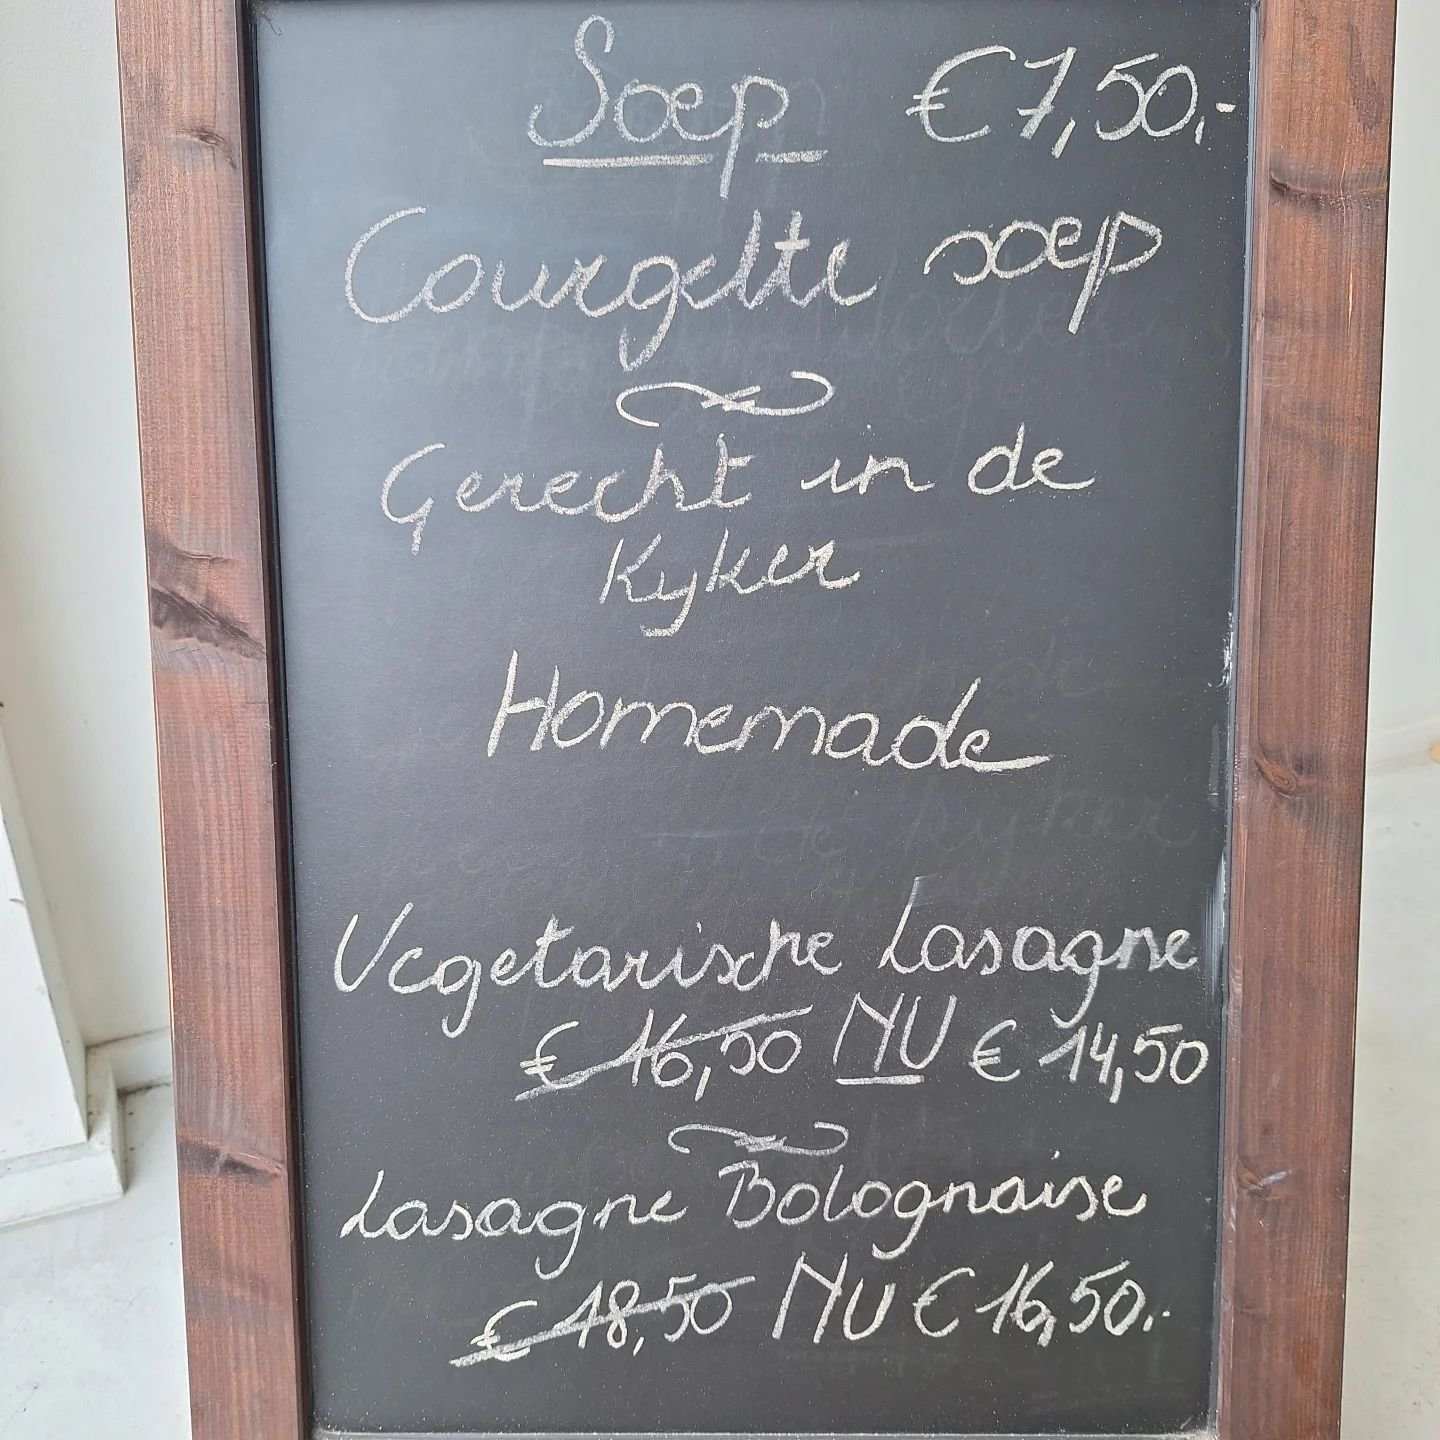 Soep €7,50,-
Courgette soep
Gerecht in de
Kyker
Homemade
Vegetarische Lasagne
€ 16,50 NU € 14,50
Lasagne Bolognaise
€ 18,50 NU € 16,50.-